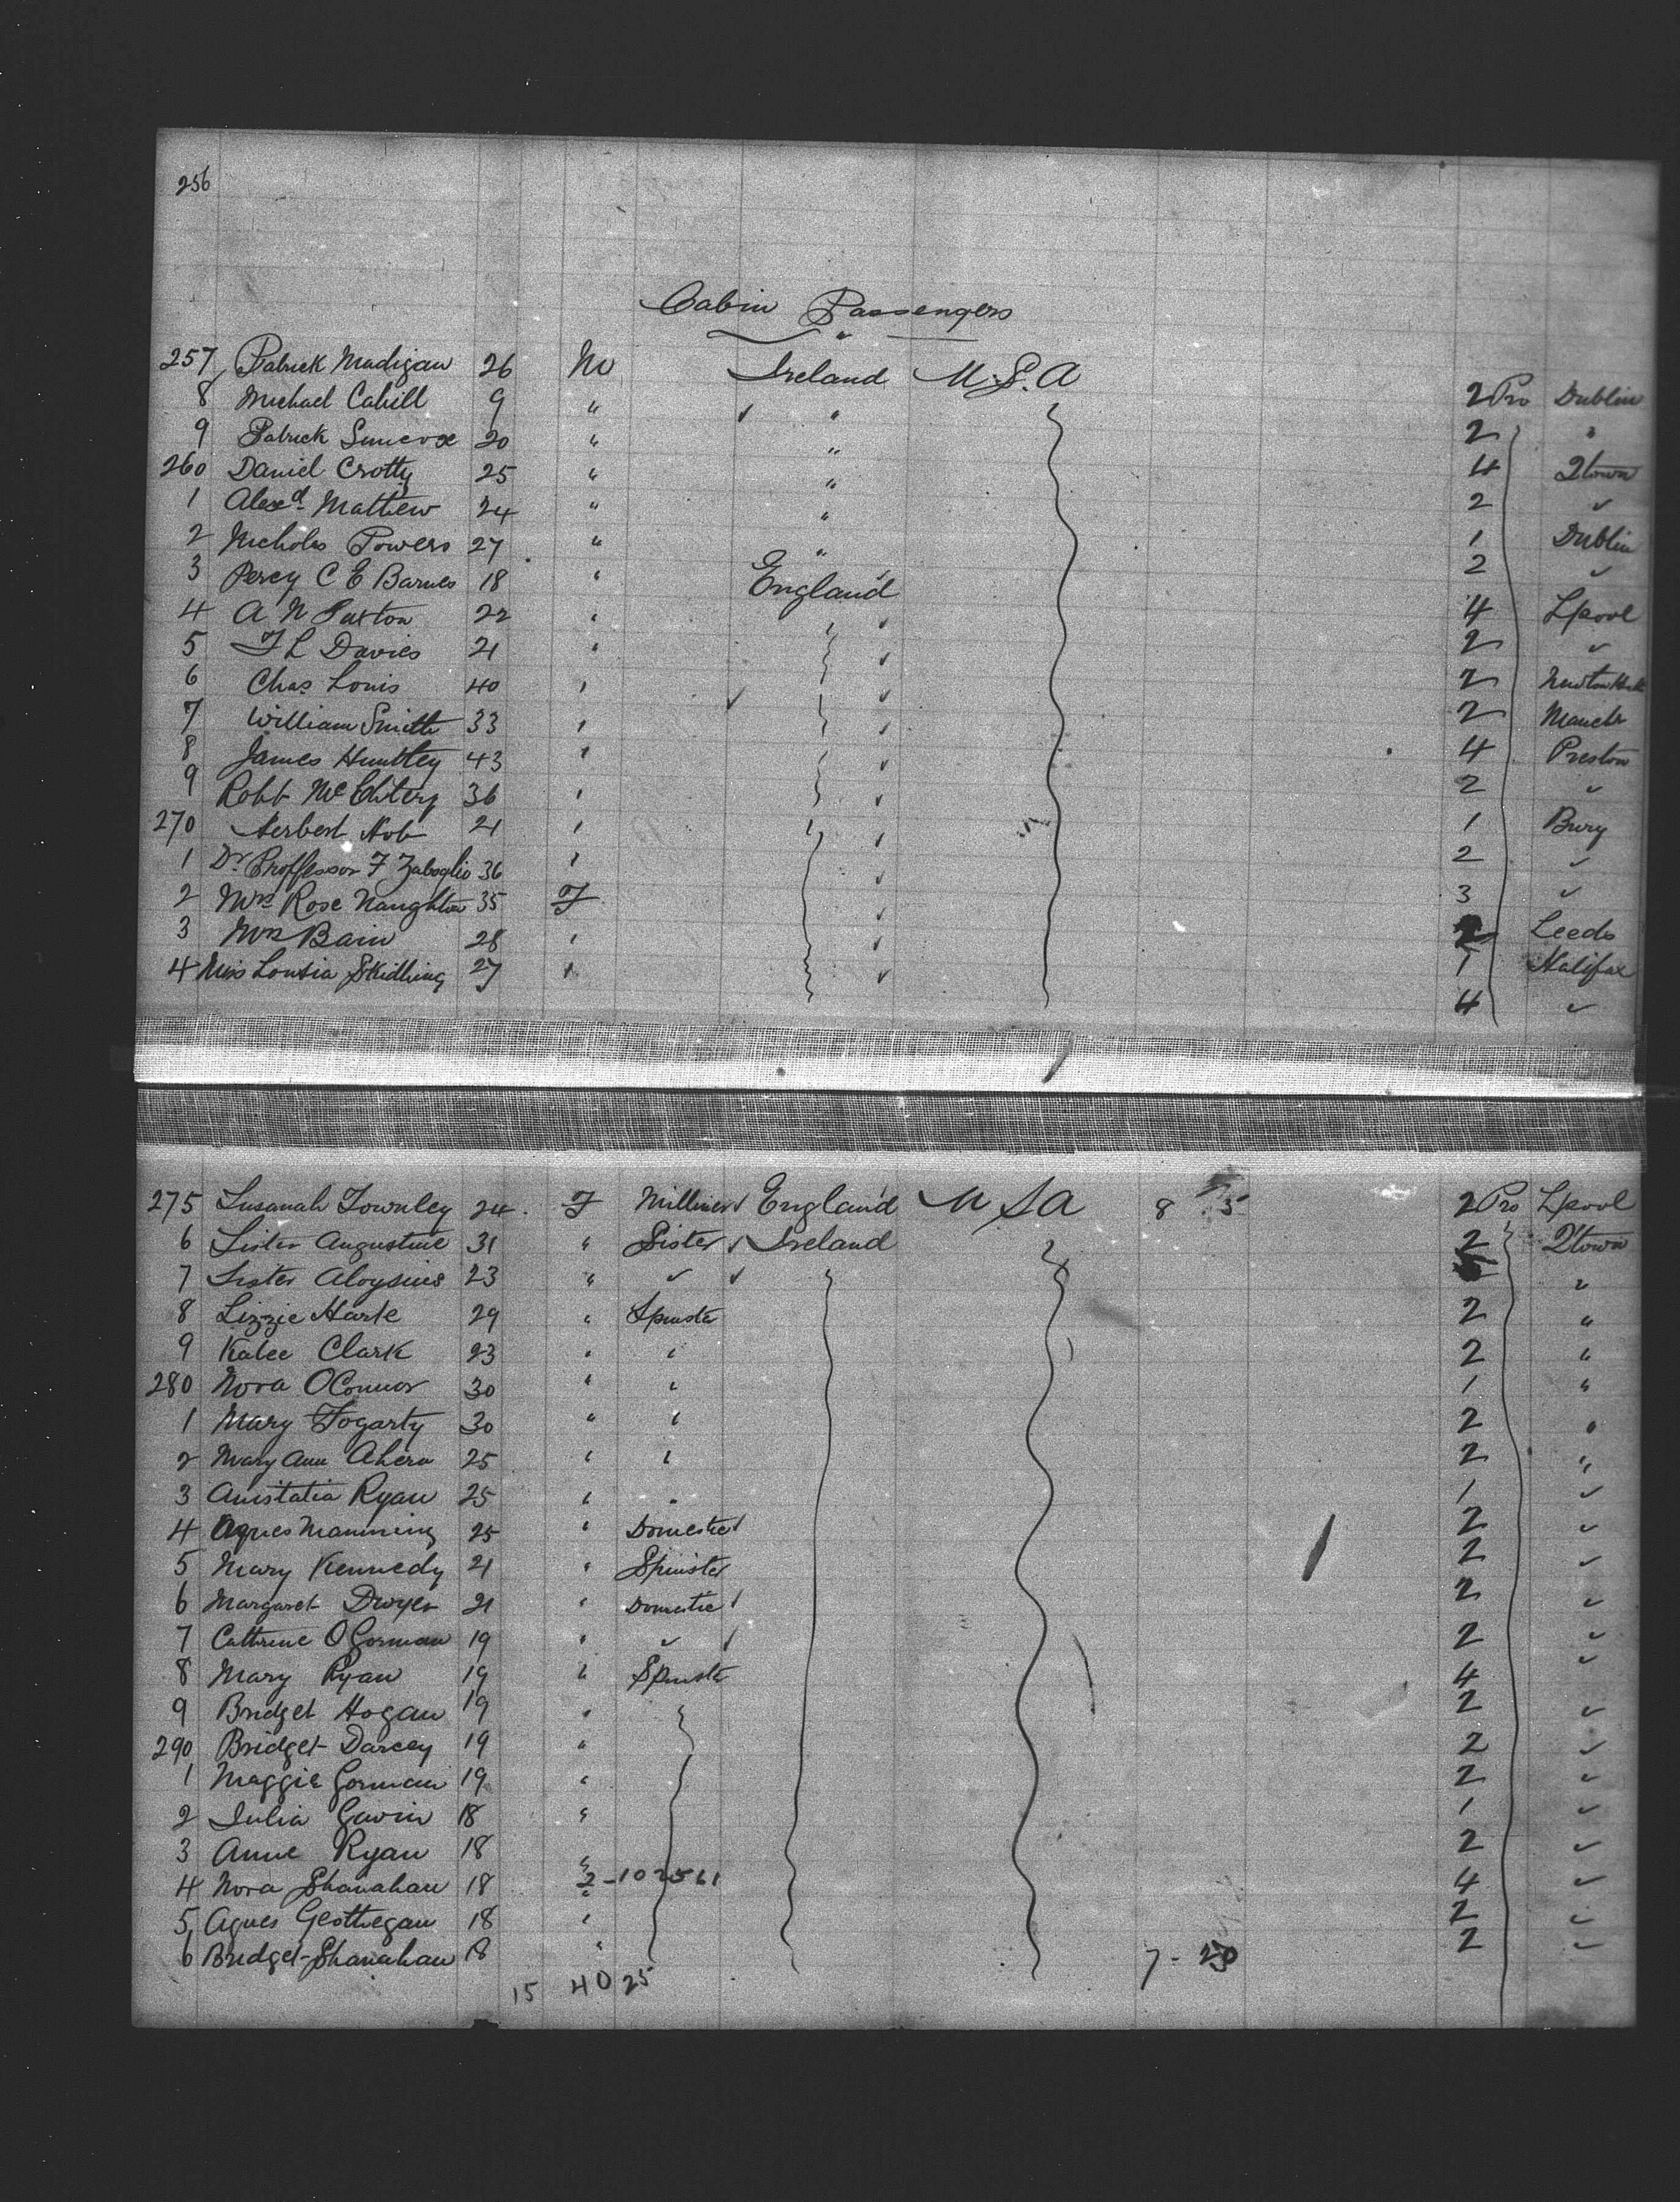 256
Cabin Passengers
257 Patrick Madigan 26 M Ireland U.S.A 2 Pro Dublin
8 Michael Cahill 9 " " 2 "
9 Patrick 20 " " 4 Qtown
260 Daniel Crotty 25 " " 2 ✓
1 Alexd Mathew 24 " " 1 Dublin
2 Nicholas Powers 27 " " 2 ✓
3 Percy C E Barnes 18 " England 4 Lpool
4 A N Paxton 22 " ✓ 2 ✓
5 F L Davies 21 " ✓ 2
6 Chas Louis 40 " ✓ 2 Manchr
7 William Smith 33 " ✓ 4 Preston
8 James Huntley 43 " ✓ 2 ✓
9 Robt 36 " ✓ 1 Bury
270 Herbert 21 " ✓ 2 ✓
1 Dr Proffessor F Zaboglio 36 " ✓ 3 ✓
2 Mrs Rose Naughton 35 F ✓ 2 Leeds
3 Mrs Bain 28 " ✓ 1 Halifax
4 Miss Lousia Skidling 27 " ✓ 4 ✓
275 Susanah Townley 24 F Milliner ✓ England U S A 8 5 2 Pro Lpool
6 Sister Augustine 31 " Sister ✓ Ireland 2 Qtown
7 Sister Aloysius 23 " ✓ ✓ "
8 Lizzie Harte 29 " Spinster 2 "
9 Katee Clark 23 " " 2 "
280 Nora OConnor 30 " " 1 "
1 Mary Fogarty 30 " " 2 "
2 Mary Ann Ahern 25 " " 2 "
3 Anistatia Ryan 25 " " 1 ✓
4 Agnes Manning 25 " Domestic 2 ✓
5 Mary Kennedy 21 " Spinster 2 ✓
6 Margaret Dwyer 21 " Domestic 2 ✓
7 Cathrine OGorman 19 " ✓ ✓ 2 ✓
8 Mary Ryan 19 " Spinster 4 ✓
9 Bridget Hogan 19 " 2 ✓
290 Bridget Darcey 19 " 2 ✓
1 Maggie Gorman 19 " 2 ✓
2 Julia Gavin 18 " 1 ✓
3 Anne Ryan 18 " 2 ✓
4 Nora Shanahan 18 2-102561 4 ✓
5 Agnes Geothegan 18 " 2 ✓
6 Bridget Shanahan 18 " 7 - 20 2 ✓
15 40 25